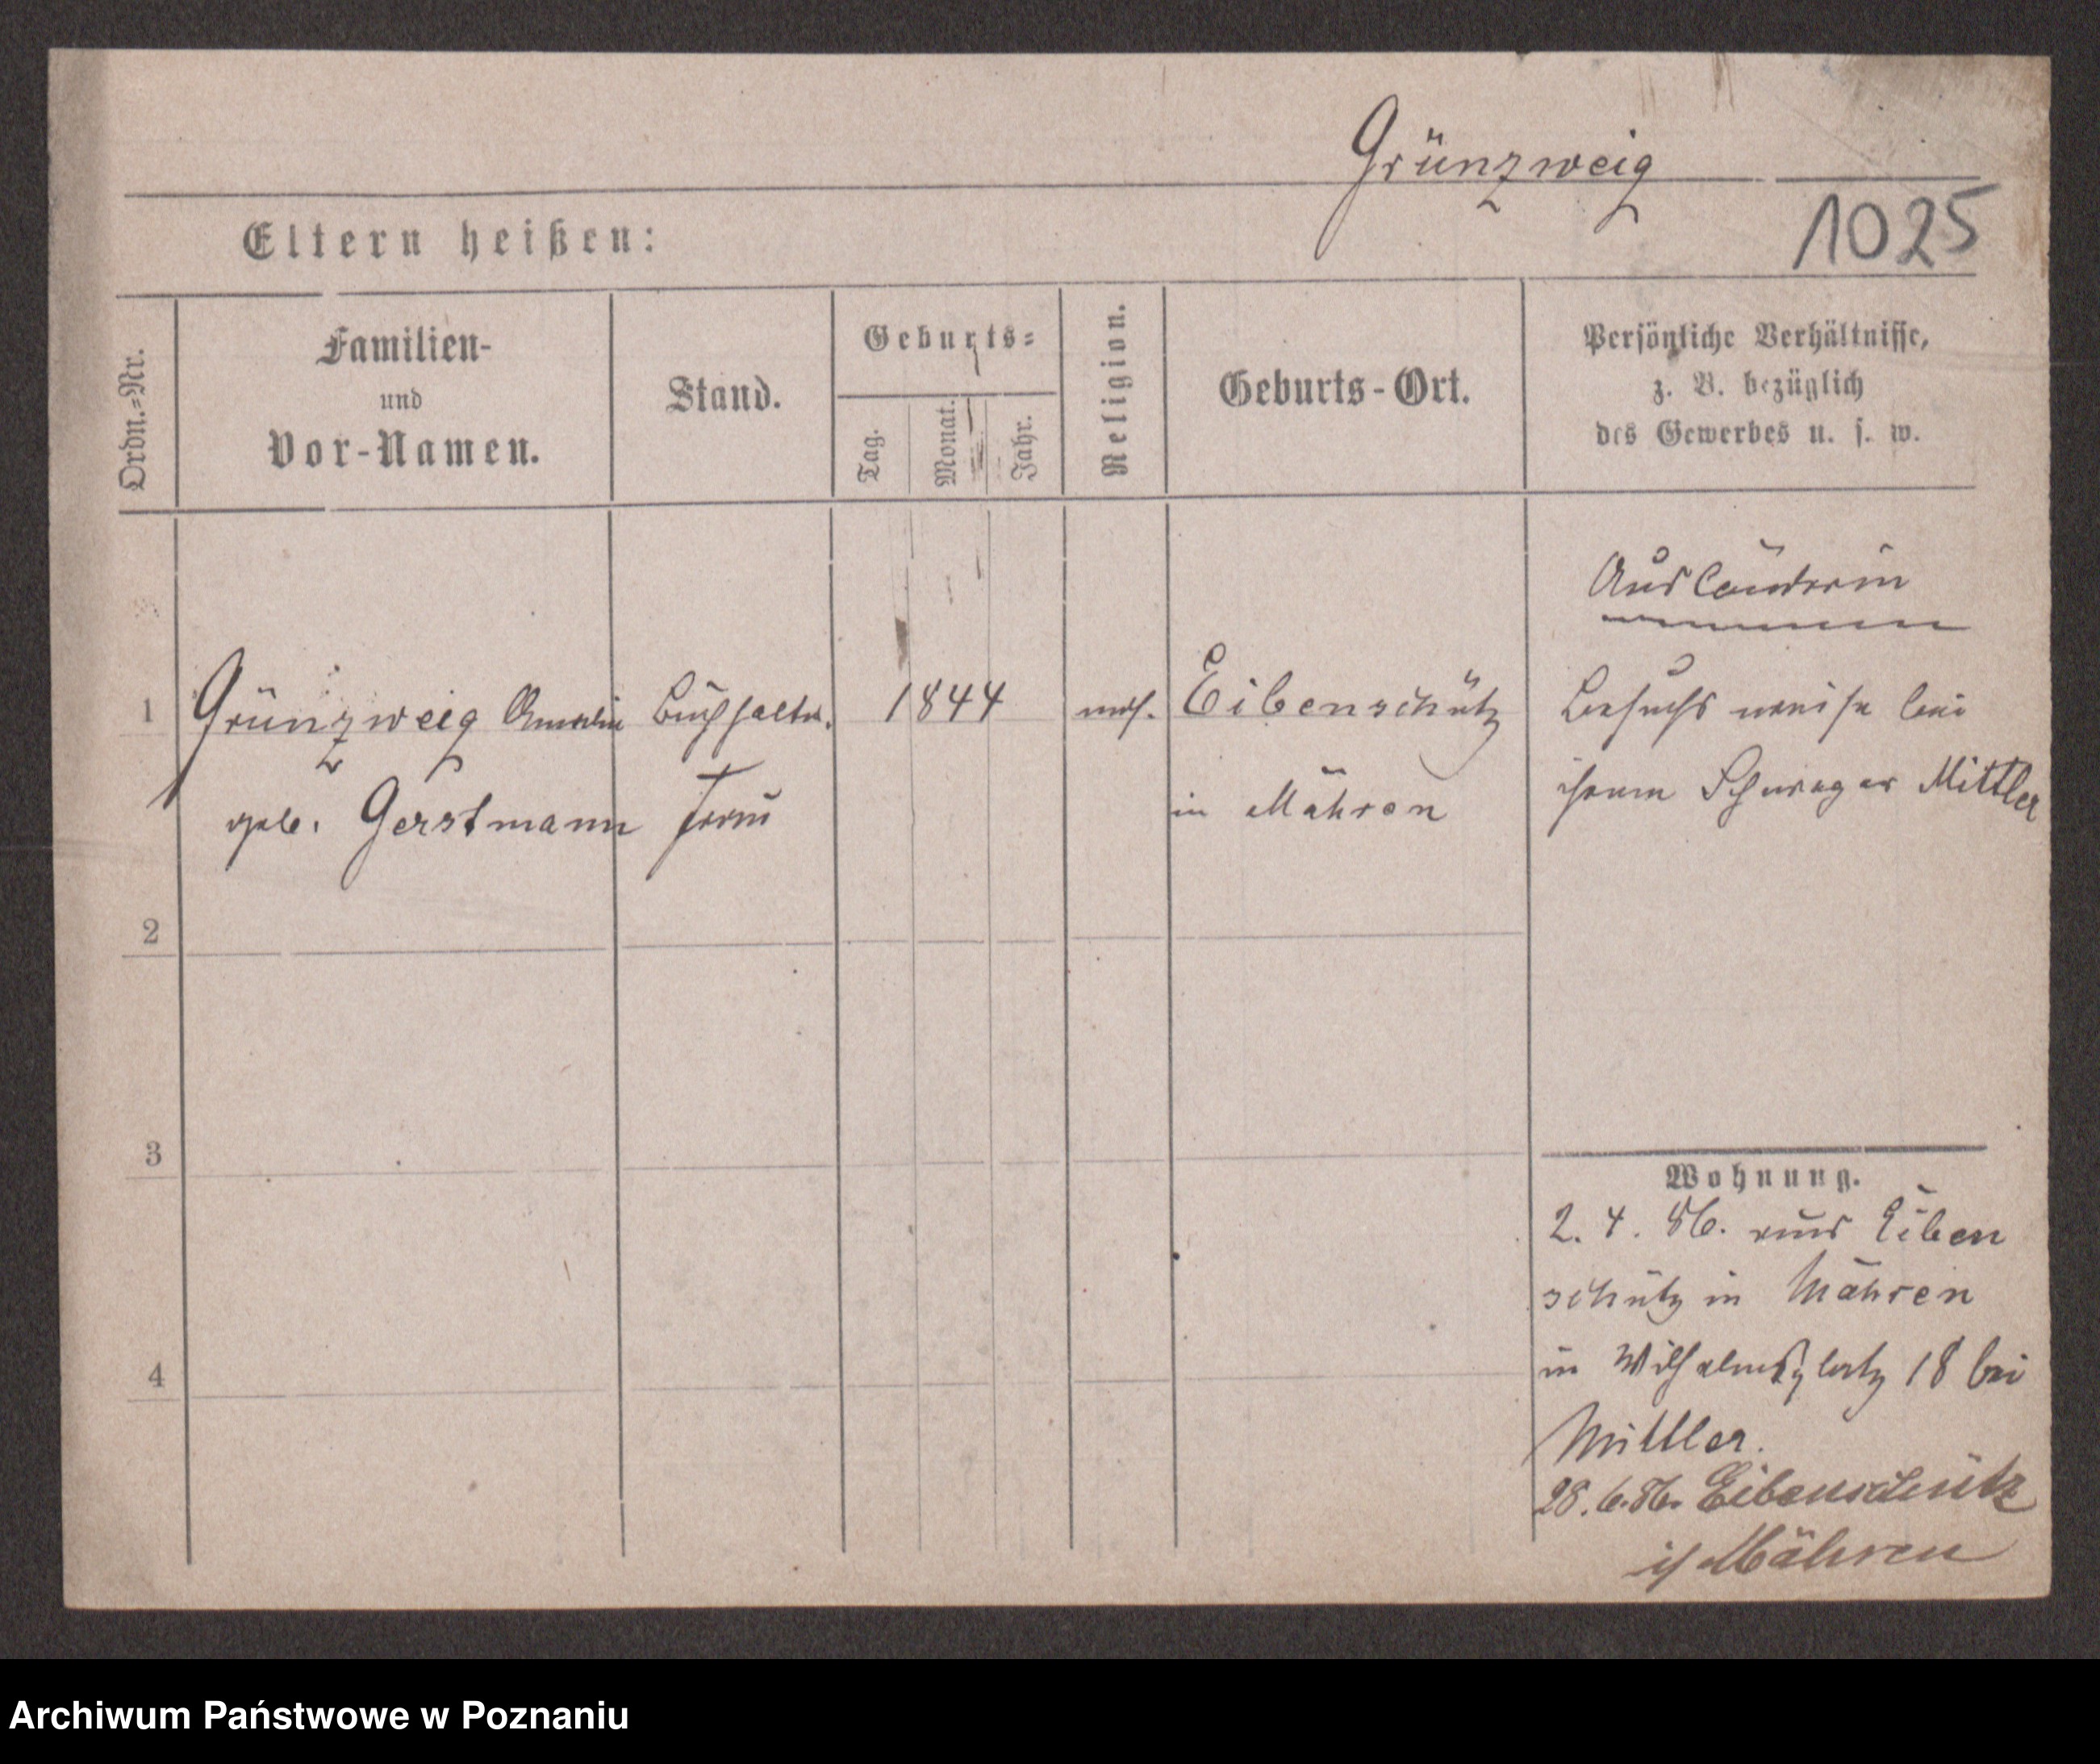 Grünzweig
1025
Eltern heißen:
Ordn.=Nr.
Familien-
und
Vor-Namen.
Stand.
Geburts=
Tag.
Monat.
Jahr.
Religion.
Geburts-Ort.
Persönliche Verhältnisse,
z. B. bezüglich
des Gewerbes u. s. w.
Ausländerin
1 Grünzweig Amalie Buchhalter 1844 mos. Eibenschütz Besuchs weise bei
geb. Gerstmann Frau in Mähren ihrem Schwager Mittler
2
3
4
Wohnung.
2. 4. 86. aus Eiben
schütz in Mähren
in Wilhelmsplatz 18 bei
Mittler.
28. 6. 86. Eibenschütz
i/ Mähren
Archiwum Państwowe w Poznaniu